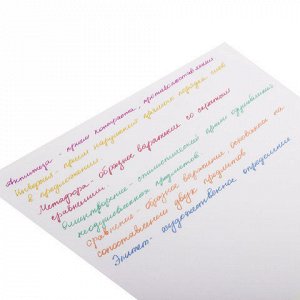 Антитеза - прием контраста, противопоставления
Инверсия - прием нарушения прямого порядка слов
в предложении
Метафора - образное выражение со скрытым
сравнением
Олицетворение - стилистический прием одушевления
неодушевленных предметов
Сравнение - образное выражение, основанное на
сопоставлении двух предметов
Эпитет - художественное определение